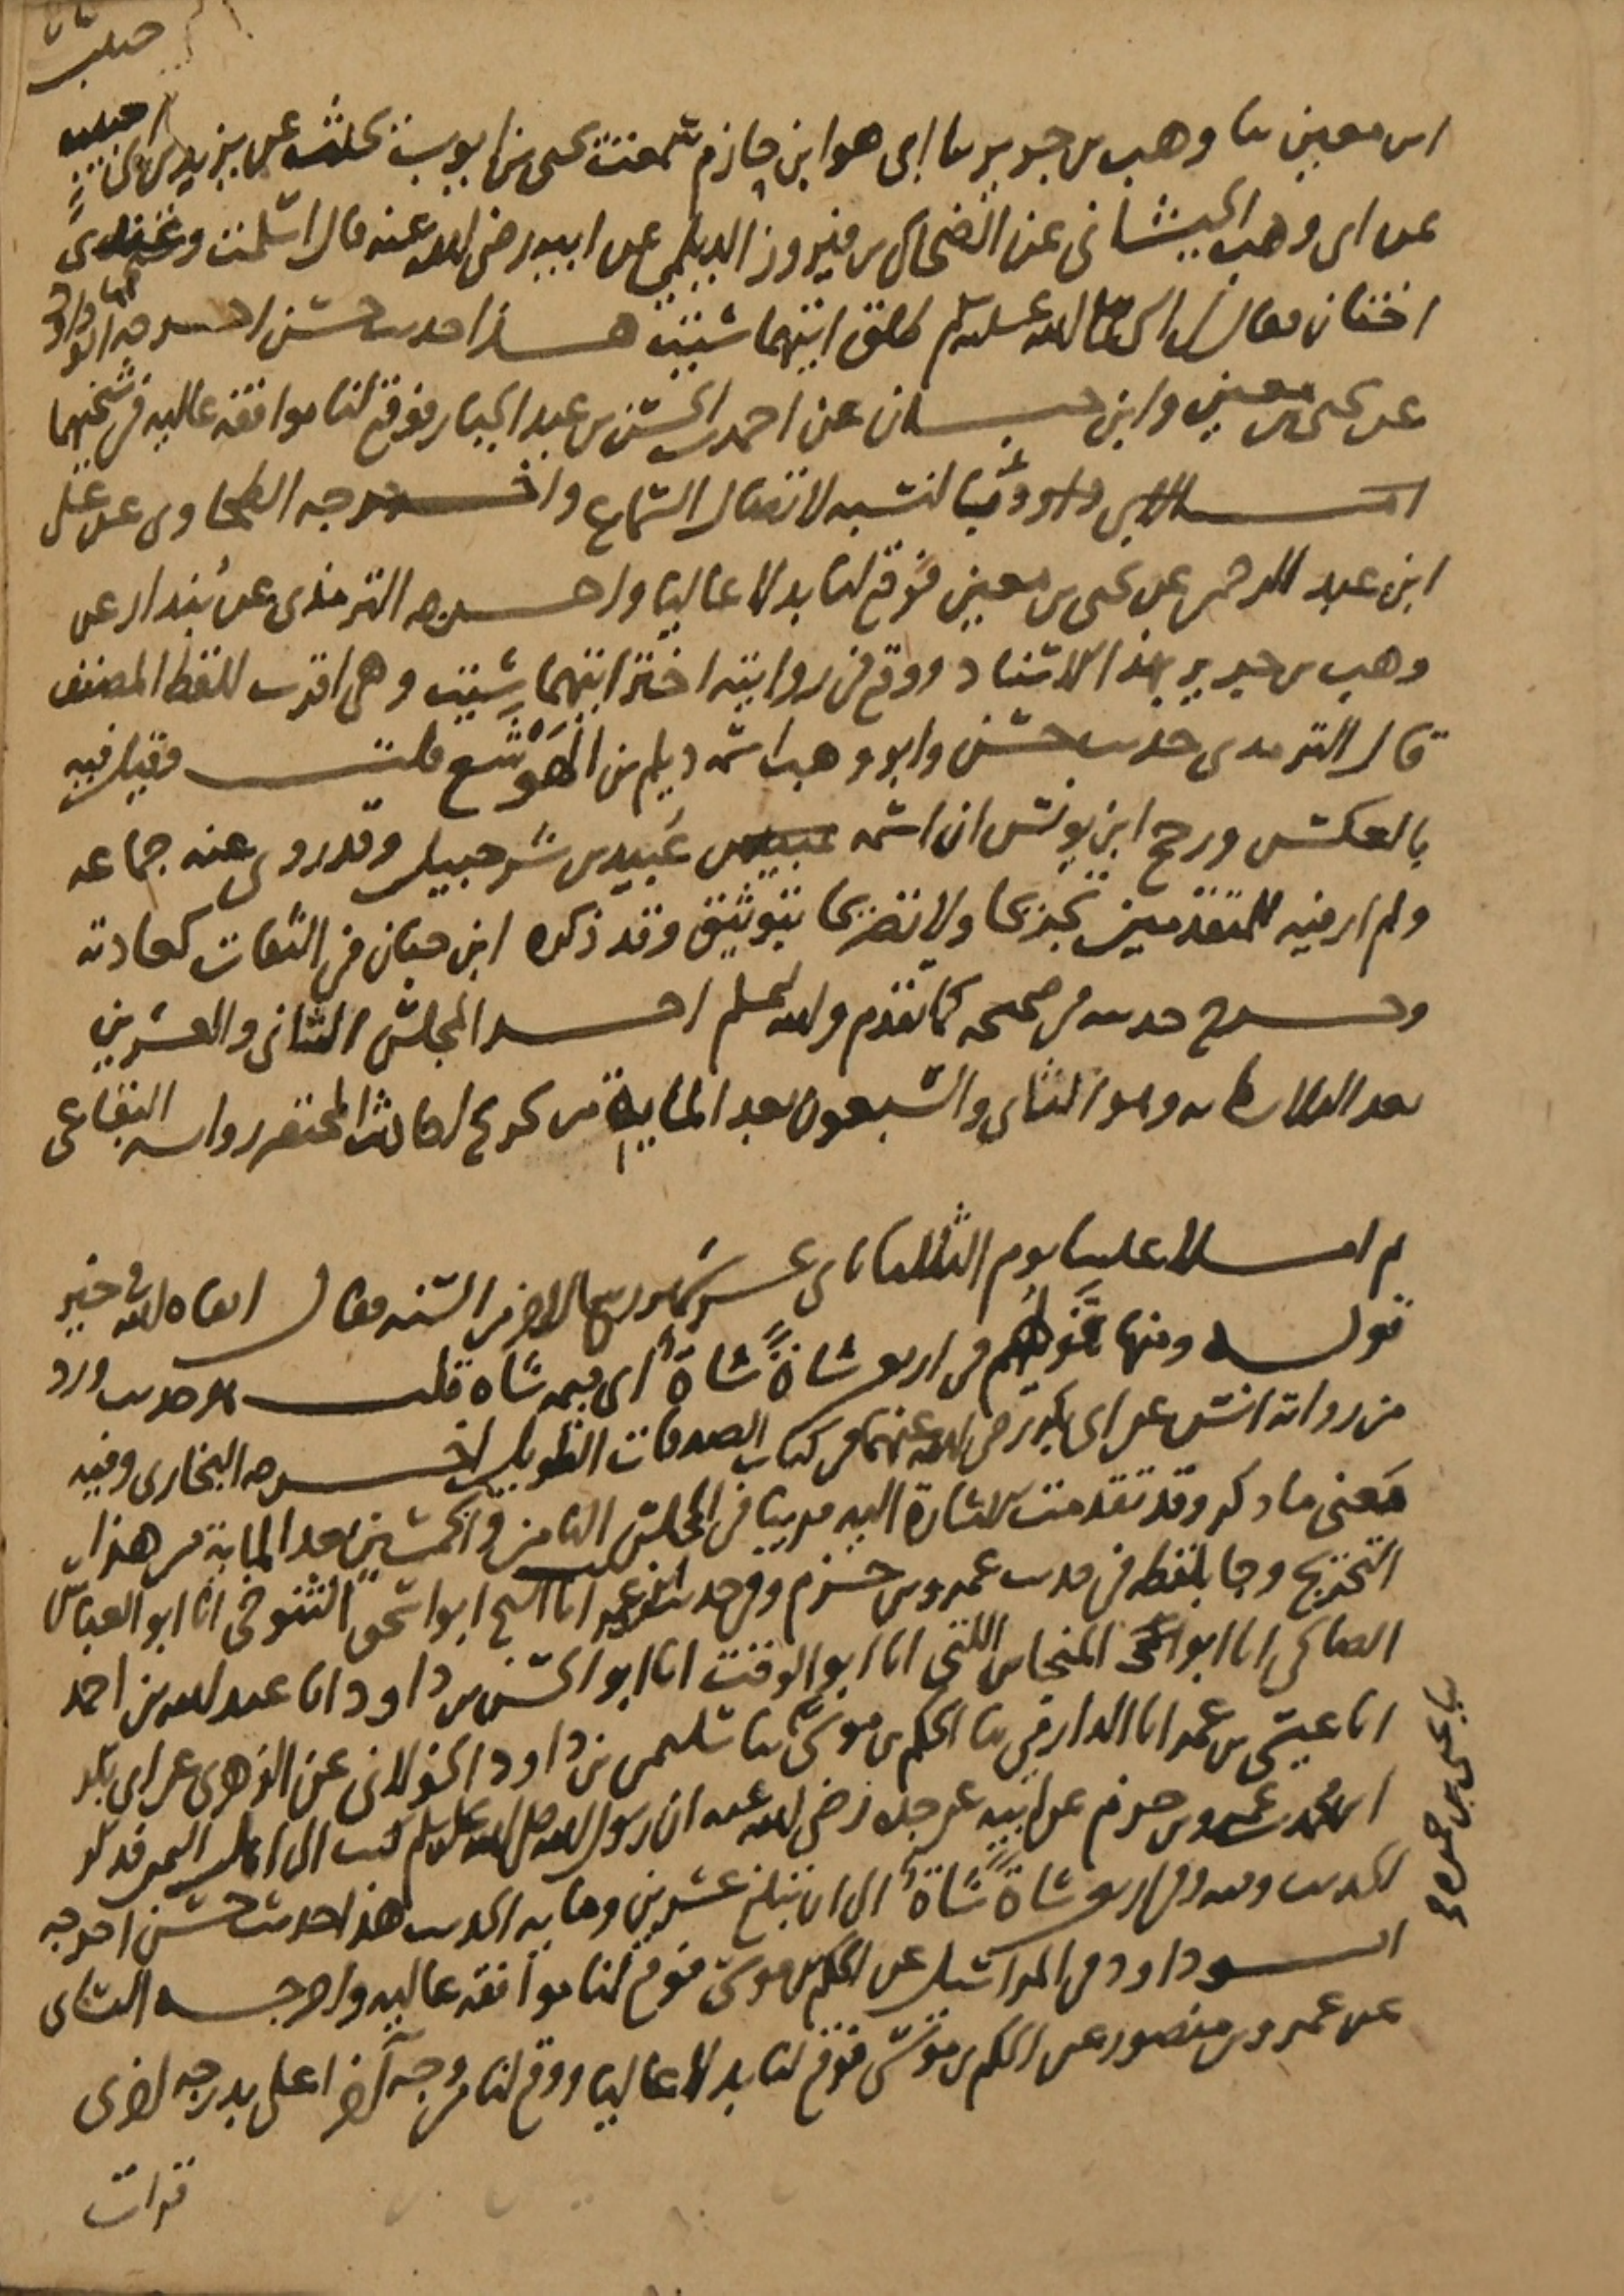 ابن معين ثنا وهب بن جرير ثنا ابي هو ابن حازم سمعت يحيى بن ايوب يحدث عن يزيد بن ابي حبيب
عن ابي وهب الجيشاني عن الضحاك بن فيروز الديلمي عن ابيه رضي الله عنه قال اسلمت وعندي
اختان فقال النبي صلى الله عليه وسلم طلق ايتهما شئت هذا حديث حسن اخرجه ابو داود
عن يحيى بن معين وابن حبان عن احمد بن الحسن بن عبد الجبار فوقع لنا موافقة عالية في شيخيهما
لابي داود بالنسبه لاتصال السماع واخرجه الطحاوي عن علي
ابن عبد الرحمن عن يحيى بن معين فوقع لنا بدلا عاليا واخرجه الترمذي عن بندار عن
وهب بن جرير بهذا الاسناد ووقع في روايته اختر ايتهما شئت وهي اقرب للفظ المصنف
قال الترمذي حديث حسن وابو وهب اسمه ديلم بن الهوشع قلت وقيل فيه
بالعكس ورجح ابن يونس ان اسمه عبيد بن شرحبيل وقد روى عنه جماعه
ولم ار فيه للمتقدمين تجريحا ولا تصريحا بتوثيق وقد ذكره ابن حبان في الثقات كعادته
وخرج حديثه في صحيحه كما تقدم والله اعلم اخر المجلس الثاني والعشرين
بعد الثلاثمايه وهو الثاني والسبعون بعد المايه من تخريج احاديث المختصر رواية البقاعي
ثم املا علينا يوم الثلثا ثاني عشر شهر ربيع الاخر من السنه فقال ابقاه الله في خير
قوله ومنها قولهم في اربعين شاة شاة اي قيمة شاه قلت هو حديث ورد
من رواية انس عن ابي بكر رضي الله عنهما في كتاب الصدقات الطويل اخرجه البخاري وفيه
معنى ما ذكر وقد تقدمت الاشارة اليه قريبا في المجلس الثامن والخمسين بعد الماية من هذا
التخريج وجا بلفظه في حديث عمرو بن حزم وفي حديث غيره انا الشيخ ابو اسحق التنوخي انا ابو العباس
الصالحي انا ابو المنجا بن اللتي انا ابو الوقت انا ابو الحسن بن داود انا عبد الله بن احمد
انا عيسى بن عمر انا الدارمي ثنا الحكم بن موسى ثنا سليمن بن داود الخولاني عن الزهري عن ابي بكر
ابن محمد بن عمرو بن حزم عن ابيه عن جده رضي الله عنه ان رسول الله صلى الله عليه وسلم كتب الى اهل اليمن فذكر
الحديث وفيه وفي اربعين شاة شاة الى ان تبلغ عشرين وماية الحديث هذا حديث حسن اخرجه
ابو داود في المراسيل عن الحكم بن موسى فوقع لنا موافقة عاليه واخرجه النساي
عن عمرو بن منصور عن الحكم بن موسى فوقع لنا بدلا عاليا ووقع لنا من وجه آخر اعلى بدرجه اخرى
قرات